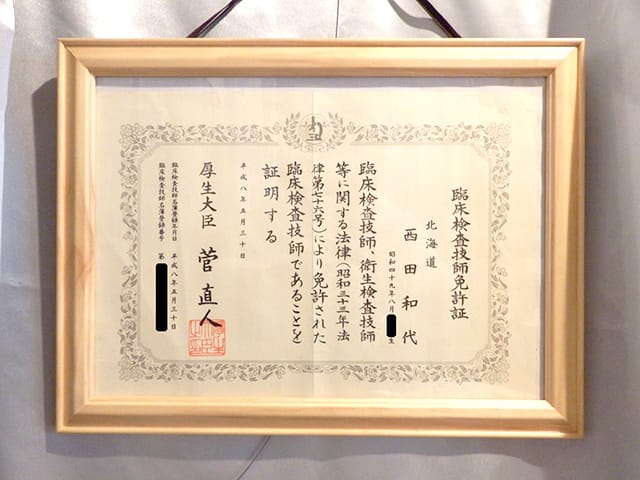 臨床検査技師免許証
北海道
西田和代
昭和四十九年八月 生
臨床検査技師、衛生検査技師
等に関する法律(昭和三十三年法
律第七十六号)により免許された
臨床検査技師であることを
証明する
平成八年五月三十日
厚生大臣 菅直人
臨床検査技師名簿登録年月日 平成八年五月三十日
臨床検査技師名簿登録番号 第